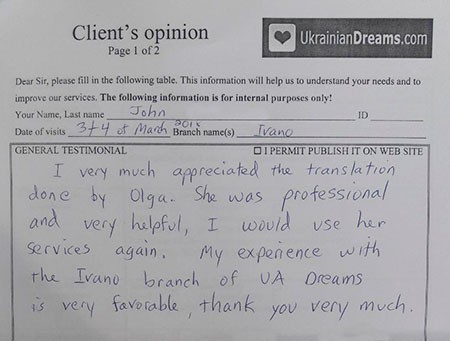 Client's opinion
Page 1 of 2
UkrainianDreams.com
Dear Sir, please fill in the following table. This information will help us to understand your needs and to
improve our services. The following information is for internal purposes only!
Your Name, Last name John ID
Date of visits 3+4 of March 2018 Branch name(s) Ivano
GENERAL TESTIMONIAL ☐ I PERMIT PUBLISH IT ON WEB SITE
I very much appreciated the translation
done by Olga. She was professional
and very helpful, I would use her
services again. My experience with
the Ivano branch of UA Dreams
is very favorable, thank you very much.